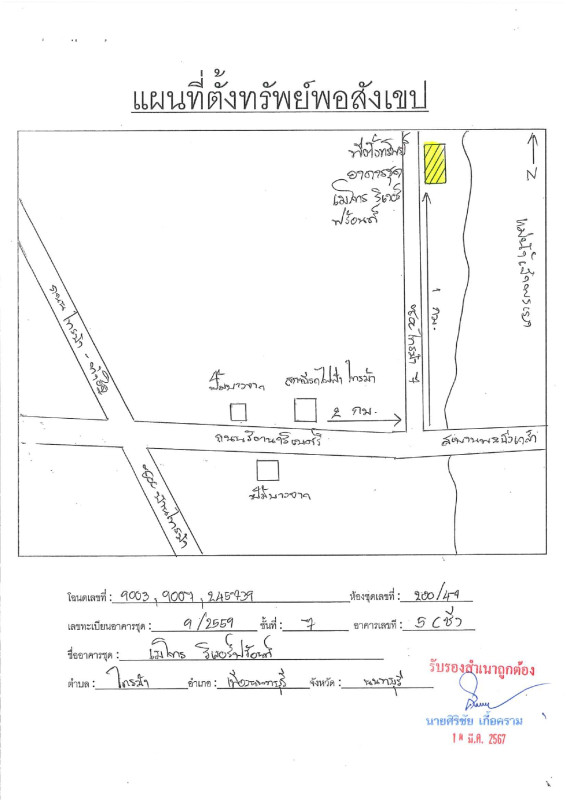 แผนที่ตั้งทรัพย์พอสังเขป
ที่ตั้งทรัพย์
อาคารชุด
เมโทร ริเวอร์
ฟร้อนต์
N
แม่น้ำเจ้าพระยา
1 กม.
ซอย ไทรม้า
ถนน ไทรม้า -
ปั๊มบางจาก
สถานีรถไฟฟ้า ไทรม้า
2 กม.
ถนนรัตนาธิเบศร์
สะพานพระนั่งเกล้า
ปั๊มบางจาก
ซอย บ้านไทรม้า
โฉนดเลขที่ : 9003, 9007, 245739 ห้องชุดเลขที่ : 200/49
เลขทะเบียนอาคารชุด : 9/2559 ชั้นที่ : 7 อาคารเลขที่ : 5 (ซีวิว)
ชื่ออาคารชุด : เมโทร ริเวอร์ฟร้อนต์
ตำบล : ไทรม้า อำเภอ : เมืองนนทบุรี จังหวัด : นนทบุรี
รับรองสำเนาถูกต้อง
นายศิริชัย เกื้อคราม
มี.ค. 2567